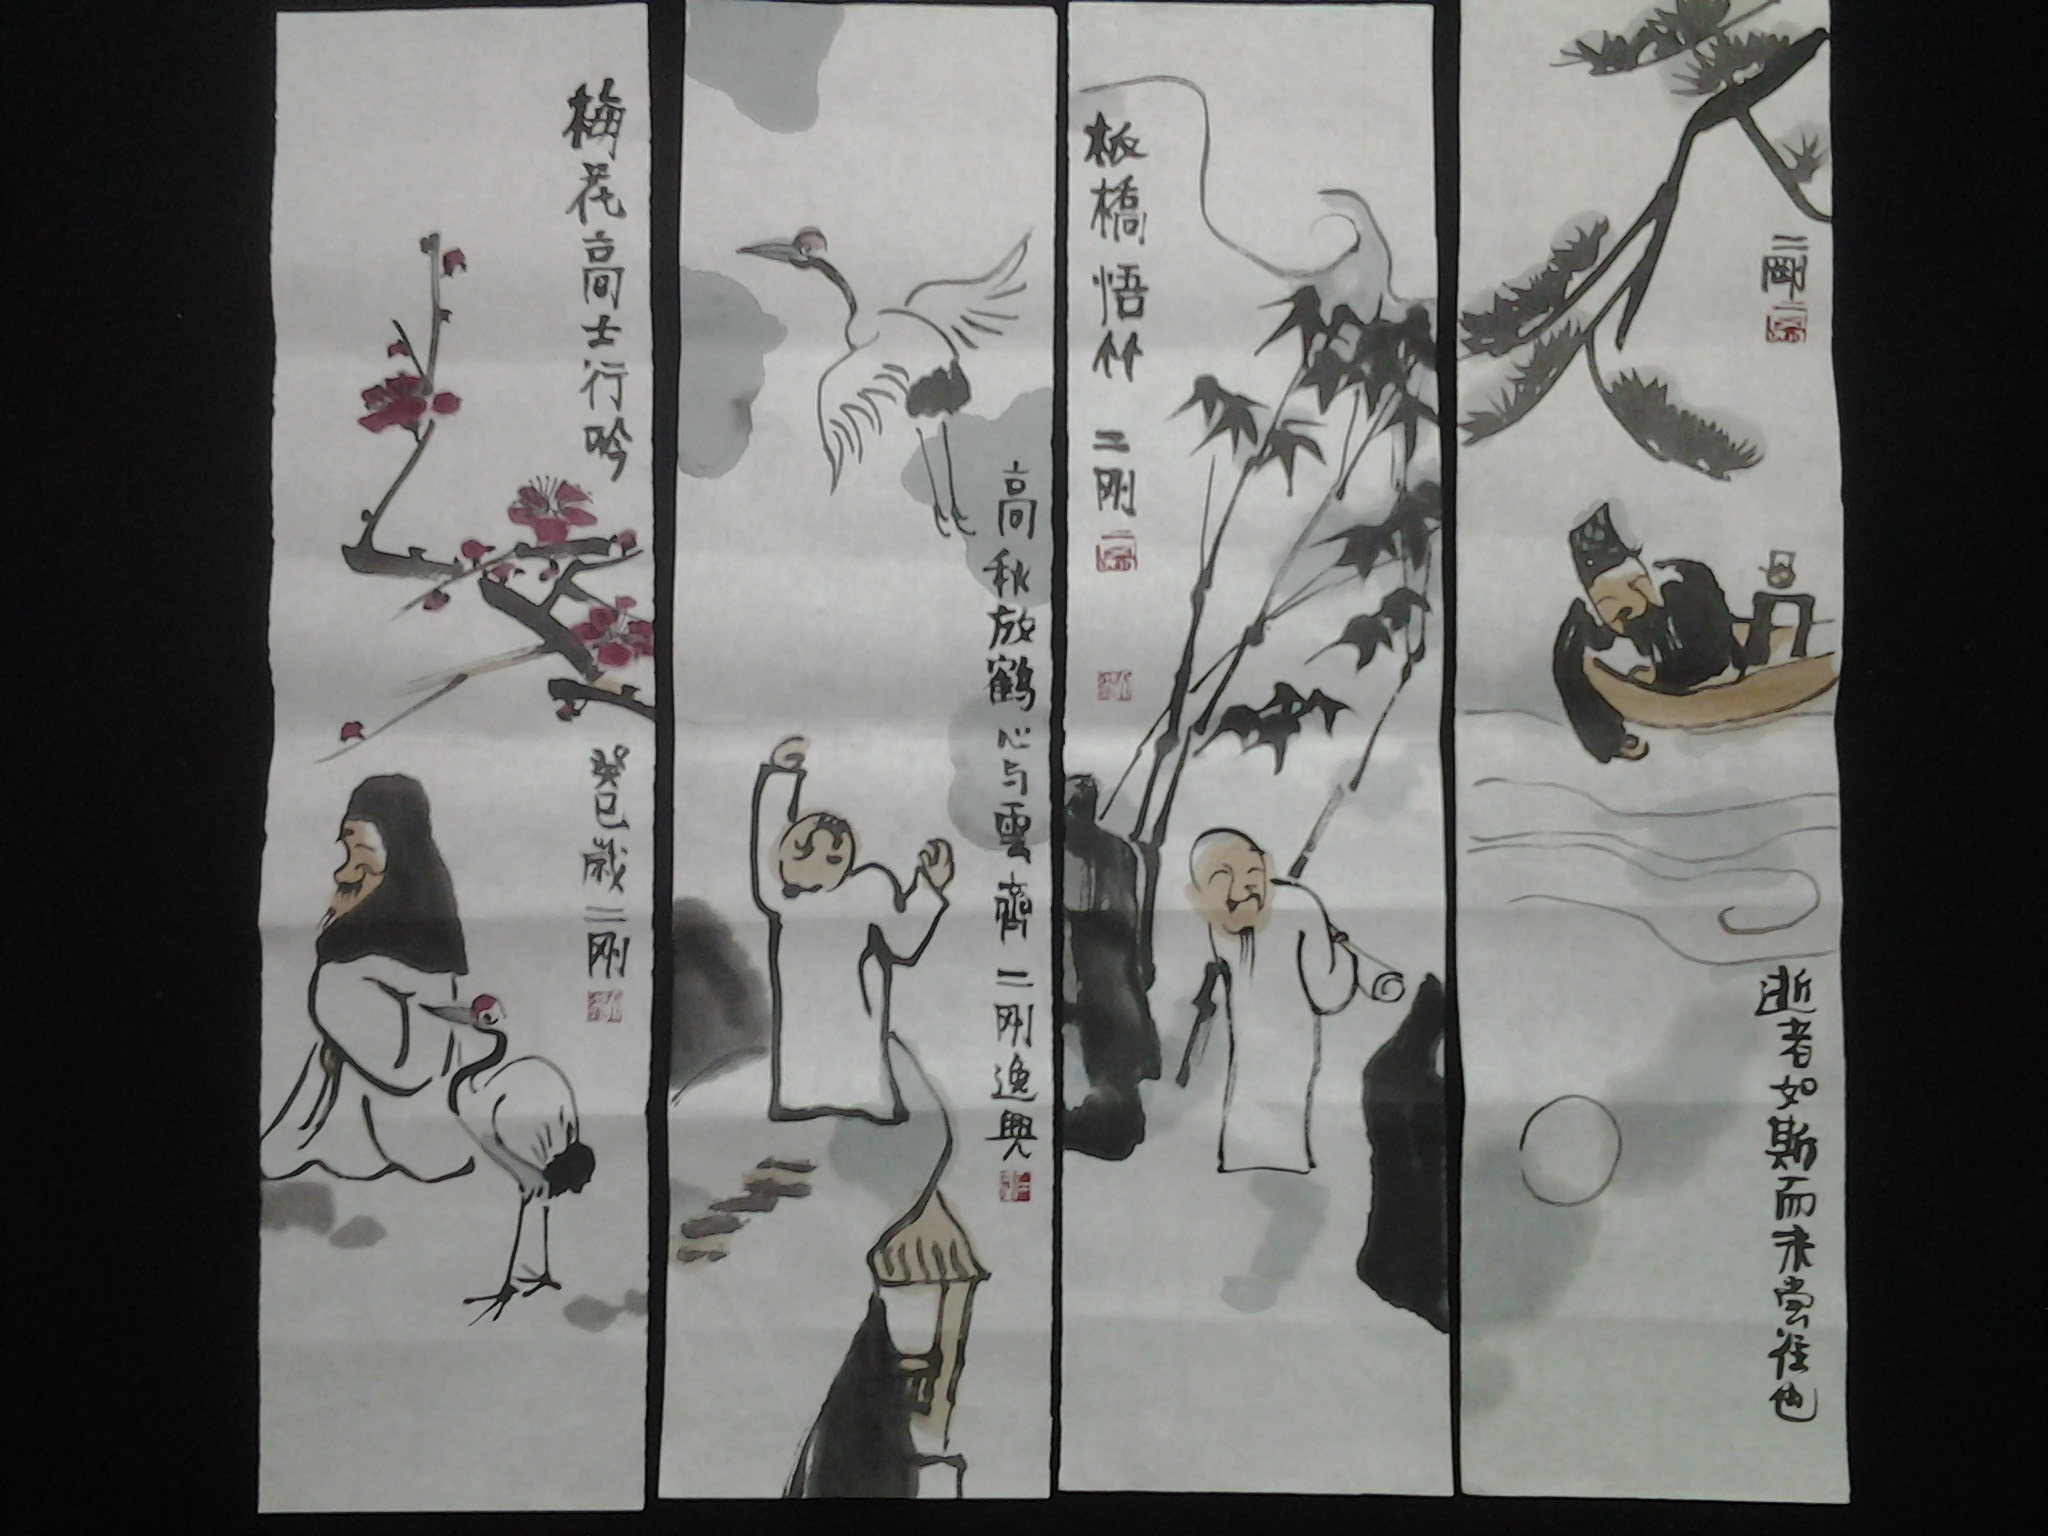 梅花高士行吟
癸巳歲二刚
高秋放鶴心与雲齊二刚逸興
板橋悟竹 二刚
二剛
逝者如斯而未嘗往也